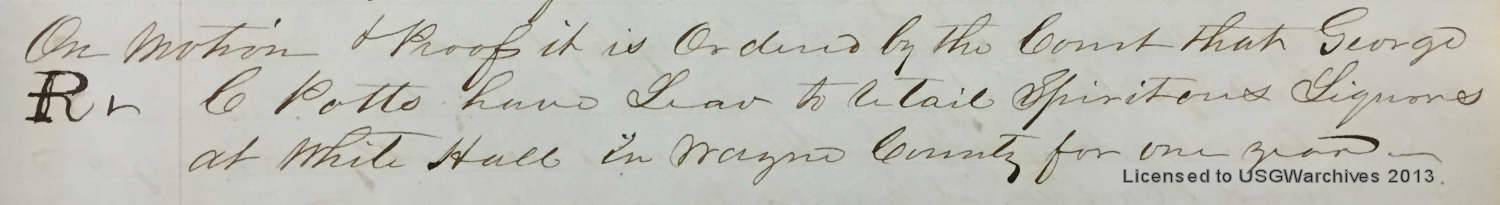 On Motion & Proof it is Ordered by the Court that George
R C Potts have Leav to retail Spiritous Liquors
at White Hall in Wayne County for one year
Licensed to USGWarchives 2013